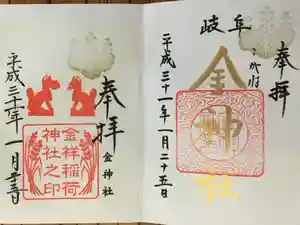 岐阜
奉拝
金神社
平成三十一年一月二十五日
奉拝
金神社
金祥稲荷
神社之印
平成三十一年一月二十五日